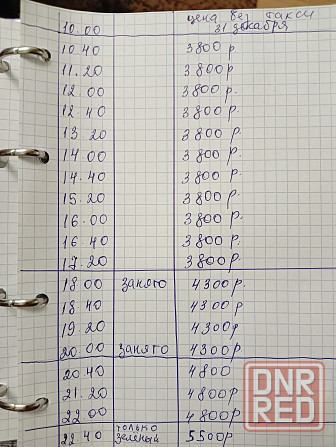 цена без такси
10.00 31 декабря
10 40 3800 р.
11.20 3800 р.
12 00 3800 р.
12 40 3800 р.
13 20 3800 р.
14 00 3800 р.
14.40 3800 р.
15.20 3800 р.
16.00 3800 р.
16.40 3800 р.
17.20 3800 р.
18.00 занято 4300 р.
18.40 4300 р.
19.20 4300 р
20.00 занято 4300 р.
20.40 4800
21.20 4800 р
22 00 4800 р.
только
22 40 зеленый 5500 р.
DNR
RED